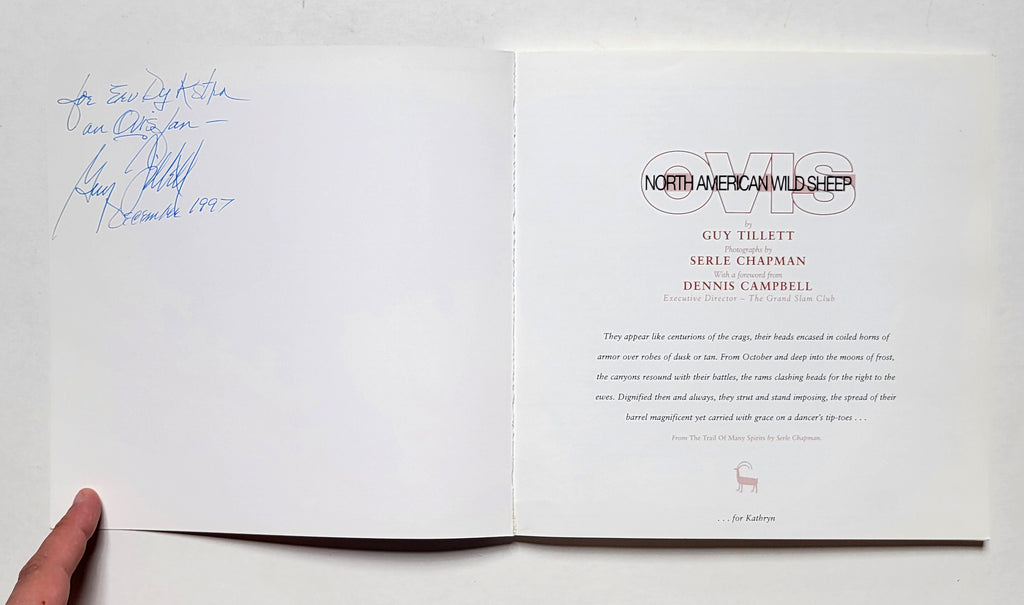 for
an Ovis fan —
Guy Tillett
December 1997
OVIS
NORTH AMERICAN WILD SHEEP
by
GUY TILLETT
Photographs by
SERLE CHAPMAN
With a foreword from
DENNIS CAMPBELL
Executive Director – The Grand Slam Club
They appear like centurions of the crags, their heads encased in coiled horns of
armor over robes of dusk or tan. From October and deep into the moons of frost,
the canyons resound with their battles, the rams clashing heads for the right to the
ewes. Dignified then and always, they strut and stand imposing, the spread of their
barrel magnificent yet carried with grace on a dancer's tip-toes . . .
From The Trail Of Many Spirits by Serle Chapman.
. . . for Kathryn